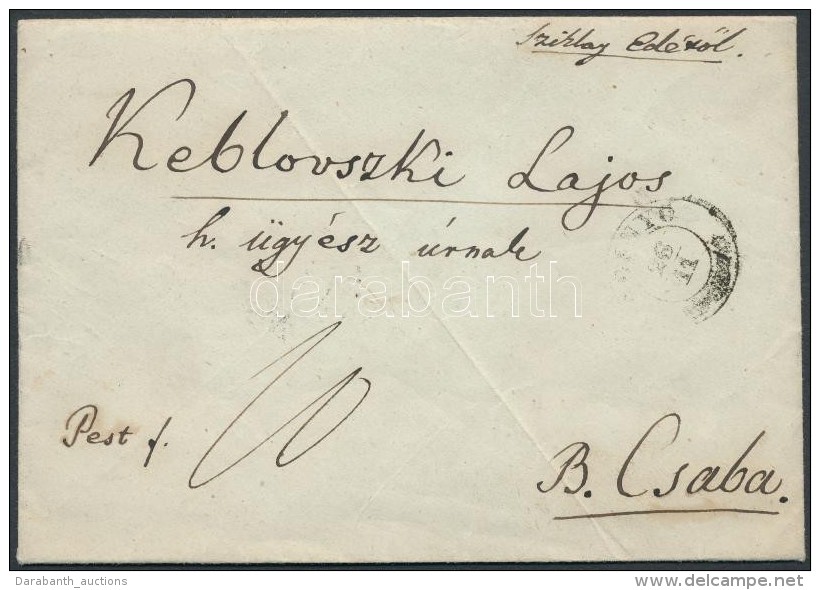 Sziklay Edétől.
Keblovszki Lajos
h. ügyész úrnak
26/11
darabanth
10
Pest f.
B. Csaba.
Darabanth_auctions
delcampe.net